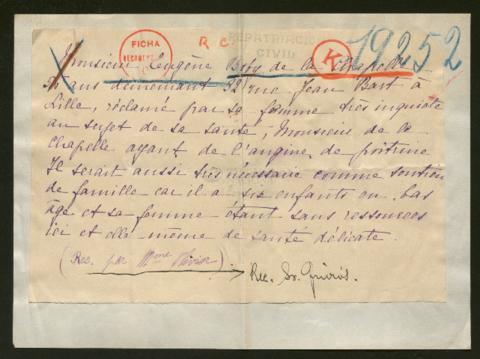 FICHA
R.C.
REPATRIACIÓN
CIVIL
K
19252
Monsieur Eugène Bory de la Chapelle
ans demeurant 52 rue Jean Bart à
Lille, réclamé par sa femme très inquiète
au sujet de sa santé, Monsieur de la
Chapelle ayant de l'angine de poitrine
Il serait aussi très nécessaire comme soutien
de famille car il a six enfants en bas
âge et sa femme étant sans ressources
ici et elle même de santé délicate.
(Rec. par Mme
Rec. Sr. Quirós.